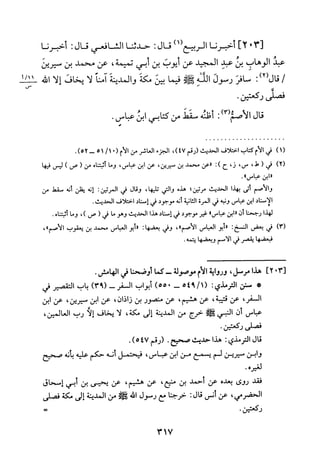 [٢٠٣] أخبرنا الربيع(١) قال: حدثنا الشافعي قال: أخبرنا
عبدُ الوهابِ بنُ عبدِ المجيدِ عن أيوبَ بنِ أبي تميمةَ، عن محمدِ بنِ سيرينَ
/ قال(٢): سافرَ رسولُ اللَّهِ ﷺ فيما بين مكةَ والمدينةِ آمناً لا يخافُ إلا الله ١١/١
ص
فصلَّى ركعتين.
قال الأصمُّ(٣): أظنُّه سقَطَ من كتابي ابنُ عباس.
(١) في الأم كتاب اختلاف الحديث (رقم ٤٧)، الجزء العاشر من الأم (١٠/ ٥١ – ٥٢).
(٢) في (ط، س، ز، ح): «عن محمد بن سيرين، عن ابن عباس، وما أثبتناه من (ص) ليس فيها
«ابن عباس».
والأصم أتى بهذا الحديث مرتين: هذه والتي تليها، وقال في المرتين: إنه يظن أنه سقط من
الإسناد ابن عباس ونبه في المرة الثانية أنه موجود في إسناد اختلاف الحديث.
لهذا رجحنا أن «ابن عباس» غير موجود في إسناد هذا الحديث وهو ما في (ص)، وما أثبتناه.
(٣) في بعض النسخ: «أبو العباس الأصم»، وفي بعضها: «أبو العباس محمد بن يعقوب الأصم»،
فبعضها يقصر في الاسم وبعضها يتمه.
[٢٠٣] هذا مرسل، ورواية الأم موصولة – كما أوضحنا في الهامش.
* سنن الترمذي: (١/ ٥٤٩ – ٥٥٠) أبواب السفر – (٣٩) باب التقصير في
السفر، عن قتيبة، عن هشيم، عن منصور بن زاذان، عن ابن سيرين، عن ابن
عباس أن النبي ﷺ خرج من المدينة إلى مكة، لا يخاف إلَّا رب العالمين،
فصلى ركعتين.
قال الترمذي: هذا حديث صحيح. (رقم ٥٤٧).
وابن سيرين لم يسمع من ابن عباس، فيحتمل أنه حكم عليه بأنه صحيح
لغيره.
فقد روى بعده عن أحمد بن منيع، عن هشيم، عن يحيى بن أبي إسحاق
الحضرمي، عن أنس قال: خرجنا مع رسول الله ﷺ من المدينة إلى مكة فصلى
ركعتين. =
٣١٧